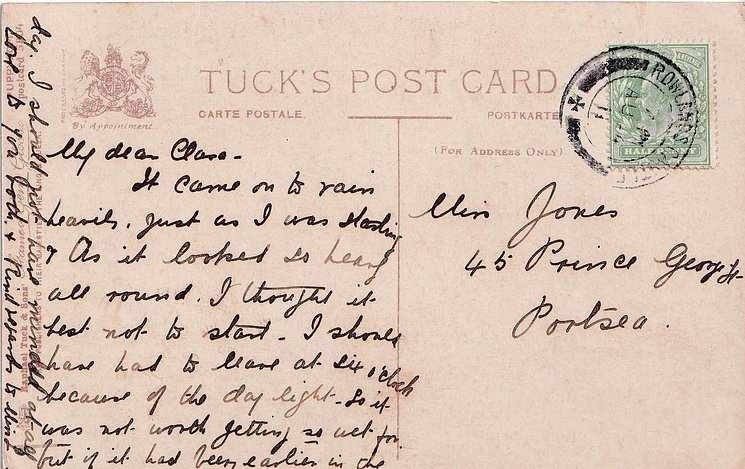 TUCK'S POST CARD
CARTE POSTALE.
POSTKARTE
By Appointment.
(FOR ADDRESS ONLY)
HALFPENNY
My dear Clara-
It came on to rain
heavily, just as I was starting
& As it looked so heavy
all round, I thought it
best not to start. I should
have had to leave at six o'clock
because of the day light - so it
was not worth getting so wet for
but if it had been earlier in the
day, I should not have minded at all
Love to you both, & Kind regards to
Miss Jones
45 Prince George St
Portsea.
Raphael Tuck & Sons'